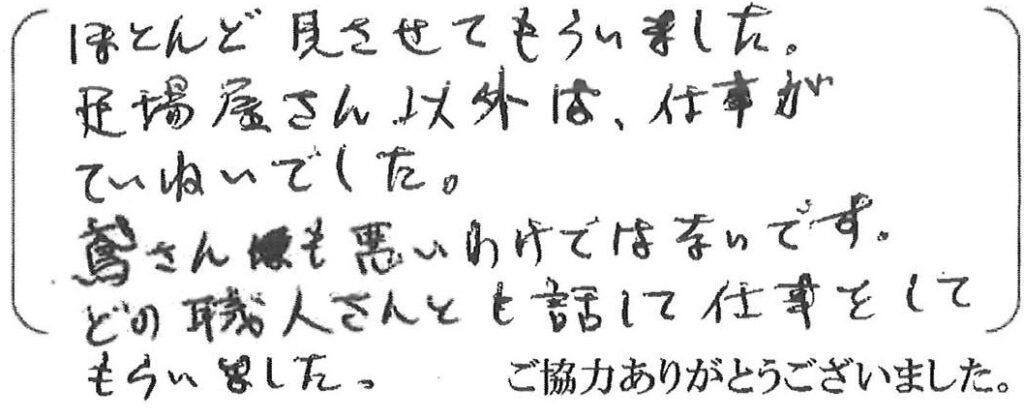 ほとんど見させてもらいました。
足場屋さん以外は、仕事が
ていねいでした。
鳶さんも悪いわけではないです。
どの職人さんとも話して仕事をして
もらいました。
ご協力ありがとうございました。